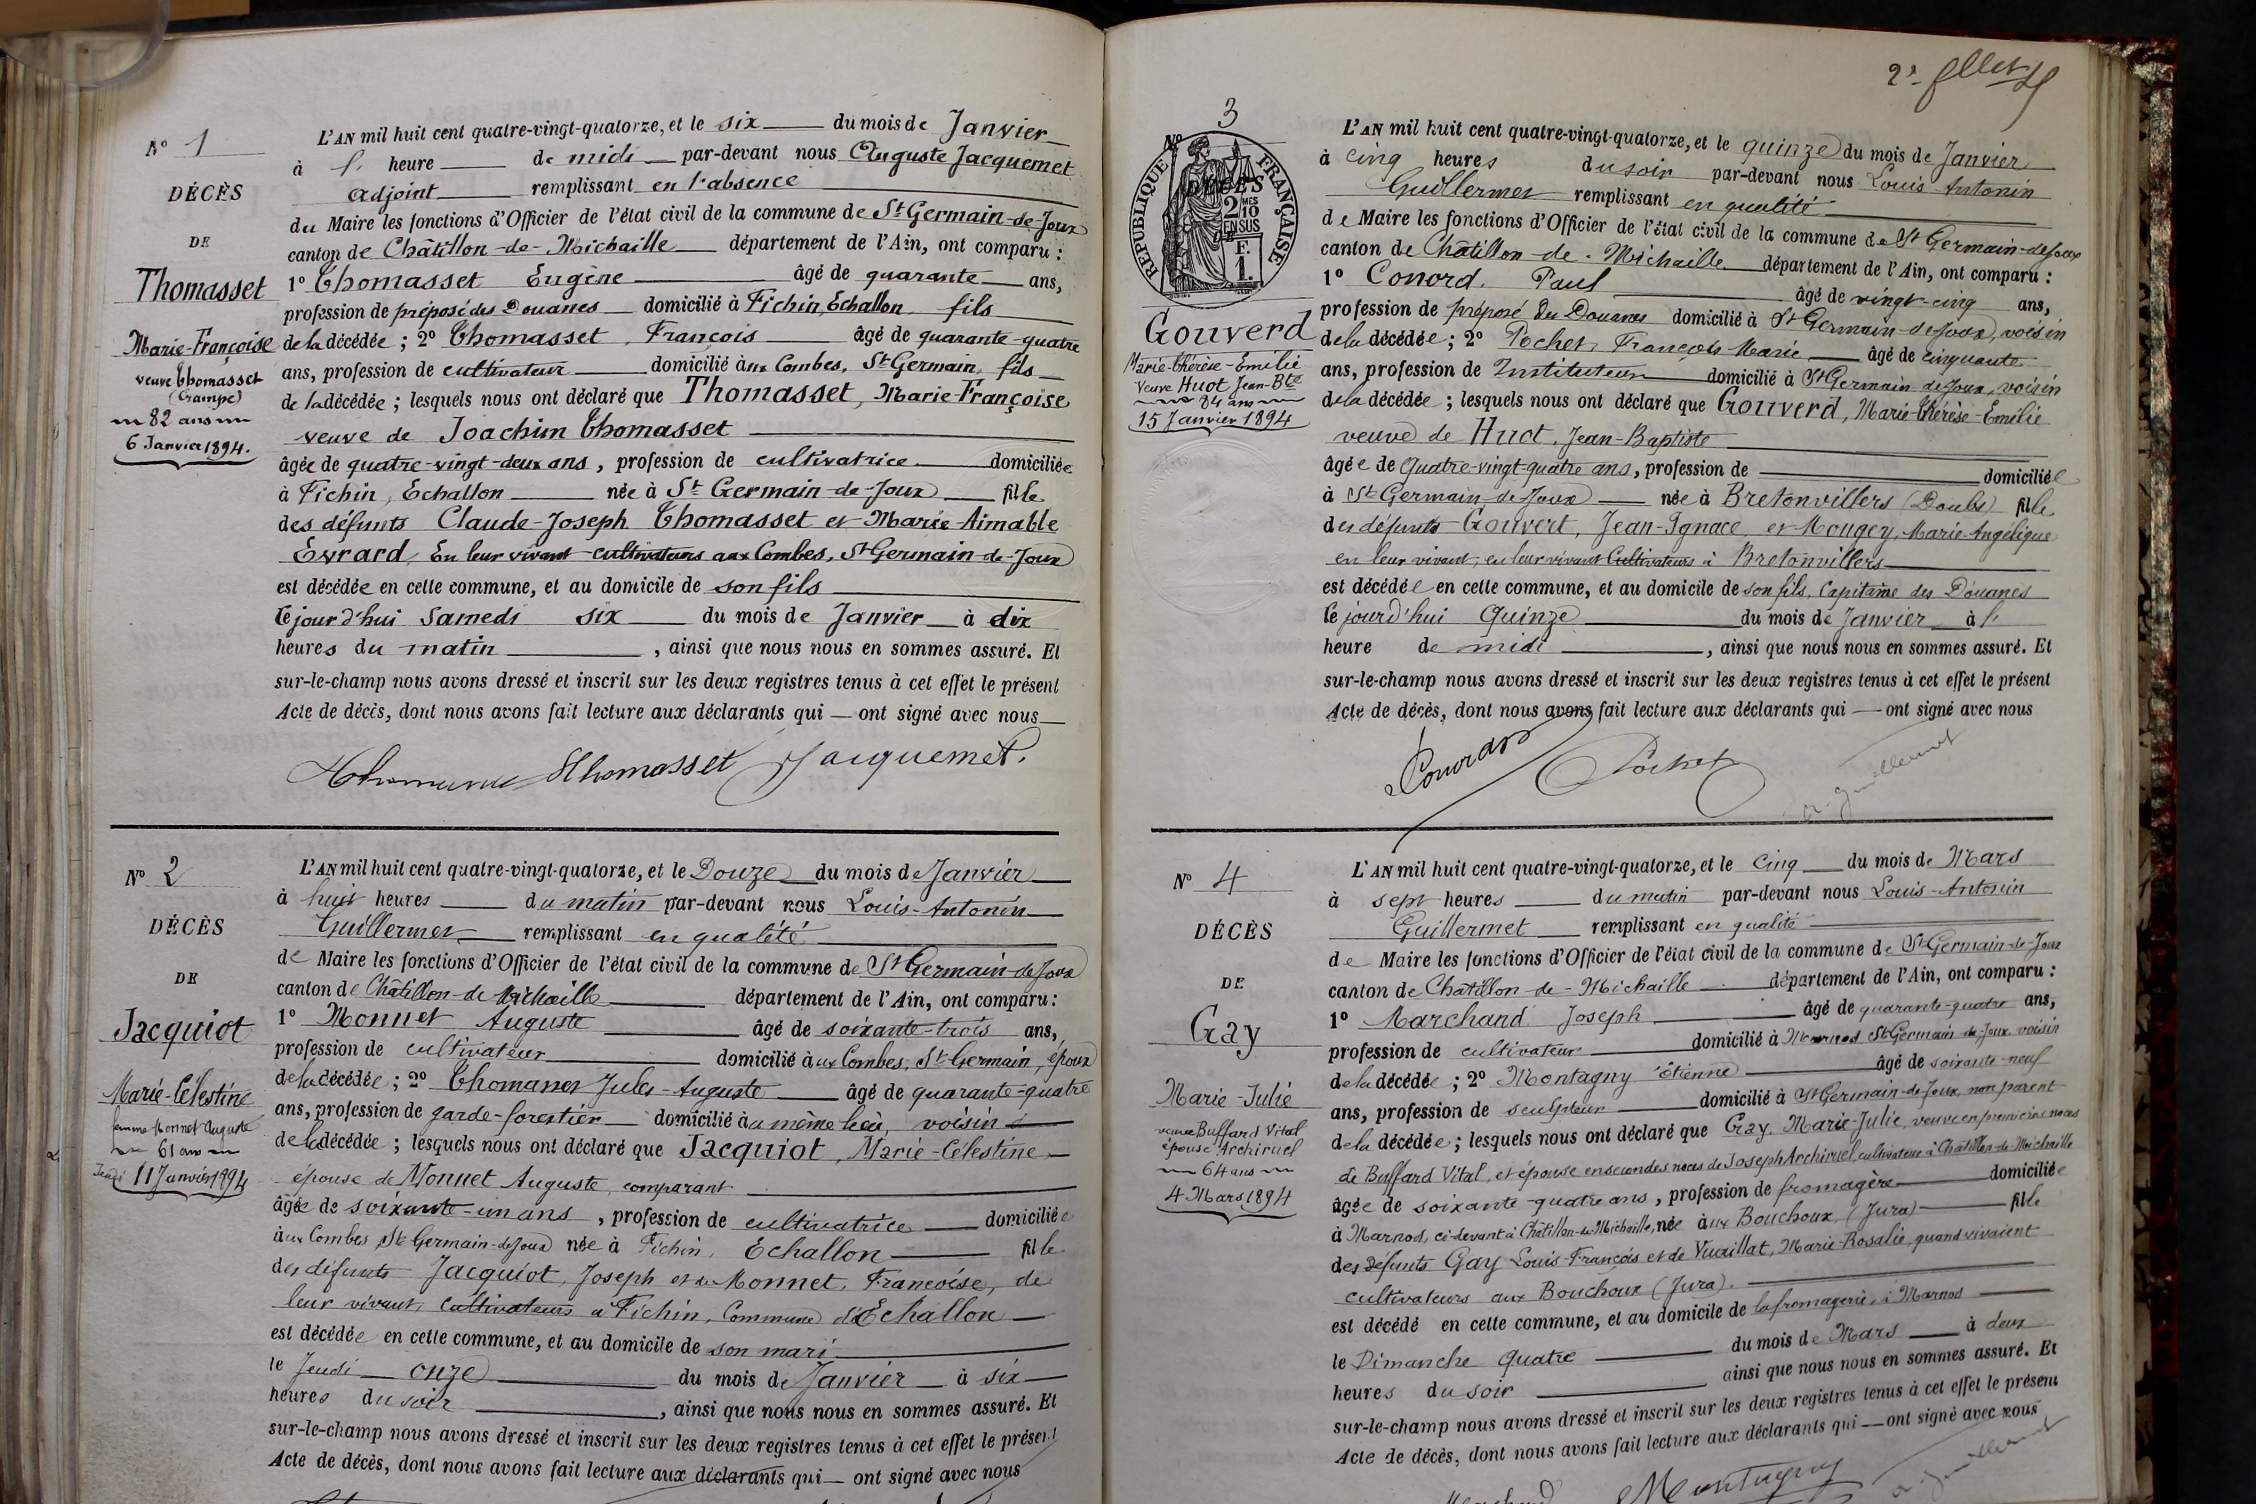 N° 1
DÉCÈS
DE
Thomasset
Marie-Françoise
veuve Thomasset
(Crampe)
82 ans
6 Janvier 1894.
L'AN mil huit cent quatre-vingt-quatorze, et le six du mois de Janvier
à 1. heure de midi par-devant nous Auguste Jacquemet
adjoint remplissant en l'absence
du Maire les fonctions d'Officier de l'état civil de la commune de St Germain-de-Joux
canton de Châtillon-de-Michaille département de l'Ain, ont comparu :
1° Thomasset Eugène âgé de quarante ans,
profession de préposé des Douanes domicilié à Fichin, Echallon fils
de la décédée ; 2° Thomasset, François âgé de quarante-quatre
ans, profession de cultivateur domicilié aux Combes, St Germain, fils
de la décédée ; lesquels nous ont déclaré que Thomasset, Marie-Françoise
veuve de Joachim Thomasset
âgée de quatre-vingt-deux ans, profession de cultivatrice domiciliée
à Fichin, Echallon née à St Germain-de-Joux fille
des défunts Claude-Joseph Thomasset et Marie-Aimable
Evrard, En leur vivant cultivateurs aux Combes, St Germain-de-Joux
est décédée en cette commune, et au domicile de son fils
Ce jourd'hui Samedi six du mois de Janvier à dix
heures du matin, ainsi que nous nous en sommes assuré. Et
sur-le-champ nous avons dressé et inscrit sur les deux registres tenus à cet effet le présent
Acte de décès, dont nous avons fait lecture aux déclarants qui — ont signé avec nous
Thomasset Jacquemet.
N° 2
DÉCÈS
DE
Jacquiot
Marie-Célestine
femme Monnet Auguste
61 ans
Jeudi 11 Janvier 1894
L'AN mil huit cent quatre-vingt-quatorze, et le Douze du mois de Janvier
à huit heures du matin par-devant nous Louis-Antonin
Guillermet remplissant en qualité
de Maire les fonctions d'Officier de l'état civil de la commune de St Germain-de-Joux
canton de Châtillon-de-Michaille département de l'Ain, ont comparu :
1° Monnet Auguste âgé de soixante-trois ans,
profession de cultivateur domicilié aux Combes, St Germain, époux
de la décédée ; 2° Thomasset Jules-Auguste âgé de quarante-quatre
ans, profession de garde-forestier domicilié au même lieu, voisin
de la décédée ; lesquels nous ont déclaré que Jacquiot, Marie-Célestine
épouse de Monnet Auguste, comparant
âgée de soixante-un ans, profession de cultivatrice domiciliée
aux Combes St Germain-de-Joux née à Fichin, Echallon fille
des défunts Jacquiot, Joseph et de Monnet, Françoise, de
leur vivant, cultivateurs à Fichin, Commune d'Echallon
est décédée en cette commune, et au domicile de son mari
le Jeudi onze du mois de Janvier à six
heures du soir, ainsi que nous nous en sommes assuré. Et
sur-le-champ nous avons dressé et inscrit sur les deux registres tenus à cet effet le présent
Acte de décès, dont nous avons fait lecture aux déclarants qui — ont signé avec nous
2e
3
N°
RÉPUBLIQUE FRANÇAISE
DÉCÈS
2 MES
10
EN SUS
DE
F.
1.
Gouverd
Marie-Thérèse-Emilie
Veuve Huot Jean-Bte
84 ans
15 Janvier 1894
L'AN mil huit cent quatre-vingt-quatorze, et le quinze du mois de Janvier
à cinq heures du soir par-devant nous Louis Antonin
Guillermet remplissant en qualité
de Maire les fonctions d'Officier de l'état civil de la commune de St Germain-de-Joux
canton de Châtillon-de-Michaille département de l'Ain, ont comparu :
1° Conord, Paul âgé de vingt-cinq ans,
profession de préposé des Douanes domicilié à St Germain-de-Joux, voisin
de la décédée ; 2° Pochet, François Marie âgé de cinquante
ans, profession de Instituteur domicilié à St Germain-de-Joux, voisin
de la décédée ; lesquels nous ont déclaré que Gouverd, Marie-Thérèse-Emilie
veuve de Huot, Jean-Baptiste
âgée de Quatre-vingt-quatre ans, profession de domiciliée
à St Germain-de-Joux née à Bretonvillers (Doubs) fille
des défunts Gouvert, Jean-Ignace et Mougey, Marie-Angélique
en leur vivant, en leur vivant Cultivateurs à Bretonvillers
est décédée en cette commune, et au domicile de son fils, Capitaine des Douanes
Ce jourd'hui Quinze du mois de Janvier à 1.
heure de midi, ainsi que nous nous en sommes assuré. Et
sur-le-champ nous avons dressé et inscrit sur les deux registres tenus à cet effet le présent
Acte de décès, dont nous avons fait lecture aux déclarants qui — ont signé avec nous
Conord Pochet a. Guillermet
N° 4
DÉCÈS
DE
Gay
Marie-Julie
veuve Buffard Vital
épouse Archiruel
64 ans
4 Mars 1894
L'AN mil huit cent quatre-vingt-quatorze, et le Cinq du mois de Mars
à sept heures du matin par-devant nous Louis-Antonin
Guillermet remplissant en qualité
de Maire les fonctions d'Officier de l'état civil de la commune de St Germain-de-Joux
canton de Châtillon-de-Michaille département de l'Ain, ont comparu :
1° Marchand Joseph âgé de quarante-quatre ans,
profession de cultivateur domicilié à Marnod St Germain-de-Joux voisin
de la décédée ; 2° Montagny Etienne âgé de soixante-neuf
ans, profession de sculpteur domicilié à St Germain-de-Joux, non parent
de la décédée ; lesquels nous ont déclaré que Gay, Marie-Julie, veuve en premières noces
de Buffard Vital, et épouse en secondes noces de Joseph Archiruel, cultivateur à Châtillon-de-Michaille
âgée de soixante-quatre ans, profession de fromagère domiciliée
à Marnod, ci-devant à Châtillon-de-Michaille, née aux Bouchoux (Jura) fille
des défunts Gay Louis-François et de Vuaillat, Marie-Rosalie, quand vivaient
cultivateurs aux Bouchoux (Jura).
est décédé en cette commune, et au domicile de la fromagerie, à Marnod
le Dimanche quatre du mois de Mars à deux
heures du soir ainsi que nous nous en sommes assuré. Et
sur-le-champ nous avons dressé et inscrit sur les deux registres tenus à cet effet le présent
Acte de décès, dont nous avons fait lecture aux déclarants qui — ont signé avec nous
Marchand Montagny a. Guillermet